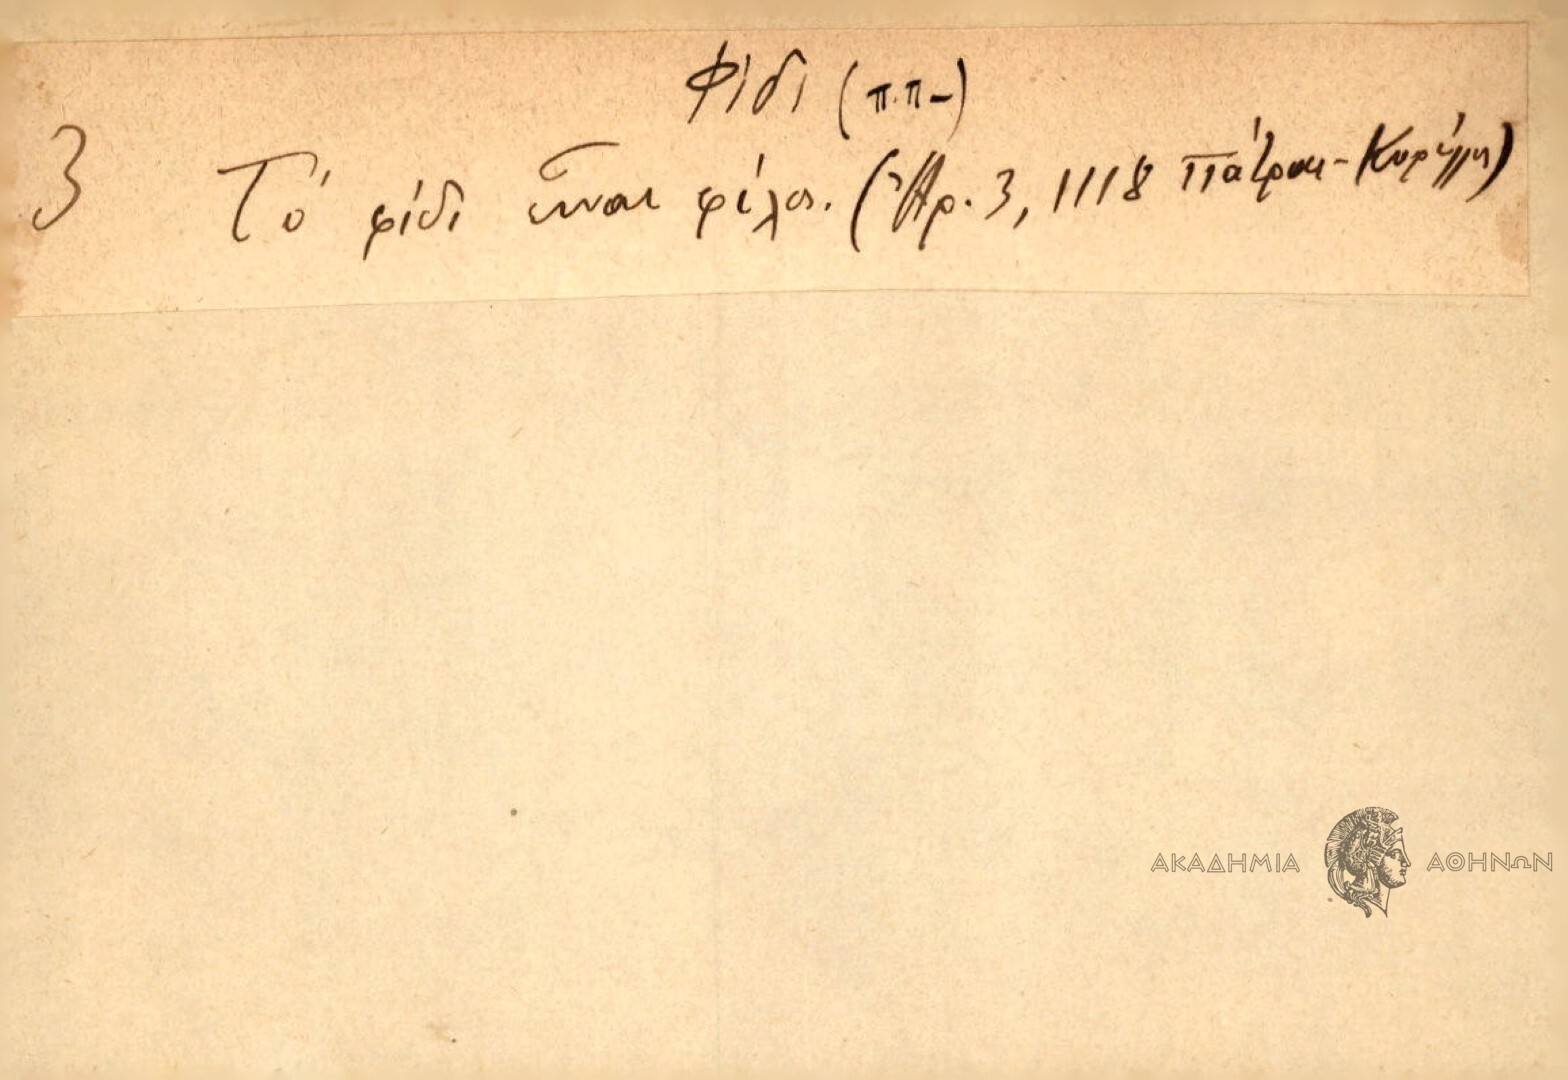 Φίδι (π.π-)
3 Τό φίδι εἶναι φίλος. (Ἀρ. 3, 1118 Πάτραι-
ΑΚΑΔΗΜΙΑ ΑΘΗΝΩΝ